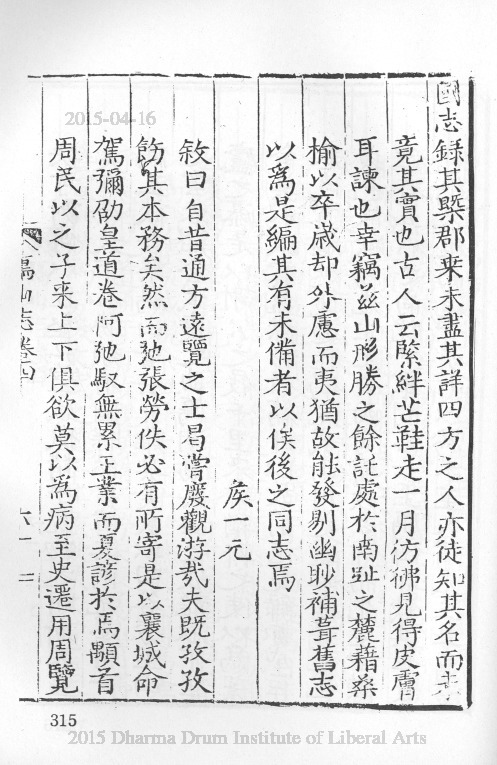 2015-04-16
國志録其槩郡来未盡其詳四方之人亦徒知其名而未
竟其實也古人云緊絆芒鞋走一月仿彿見得皮膚
耳諫也幸竊兹山形勝之餘託處於南趾之麓藉桑
榆以卒歲却外慮而夷猶故能發剔幽眇補葺舊志
以爲是編其有未備者以俟後之同志焉
侯一元
敘曰自昔通方遠覽之士曷嘗廢觀游哉夫既孜孜
飭其本務矣然而弛張勞佚必有所寄是以襄城命
駕彌劭皇道卷阿弛馭無累王業而夏諺於焉顒首
周民以之子来上下俱欲莫以爲病至史遷用周覽
山志卷四
六十二
315
2015 Dharma Drum Institute of Liberal Arts